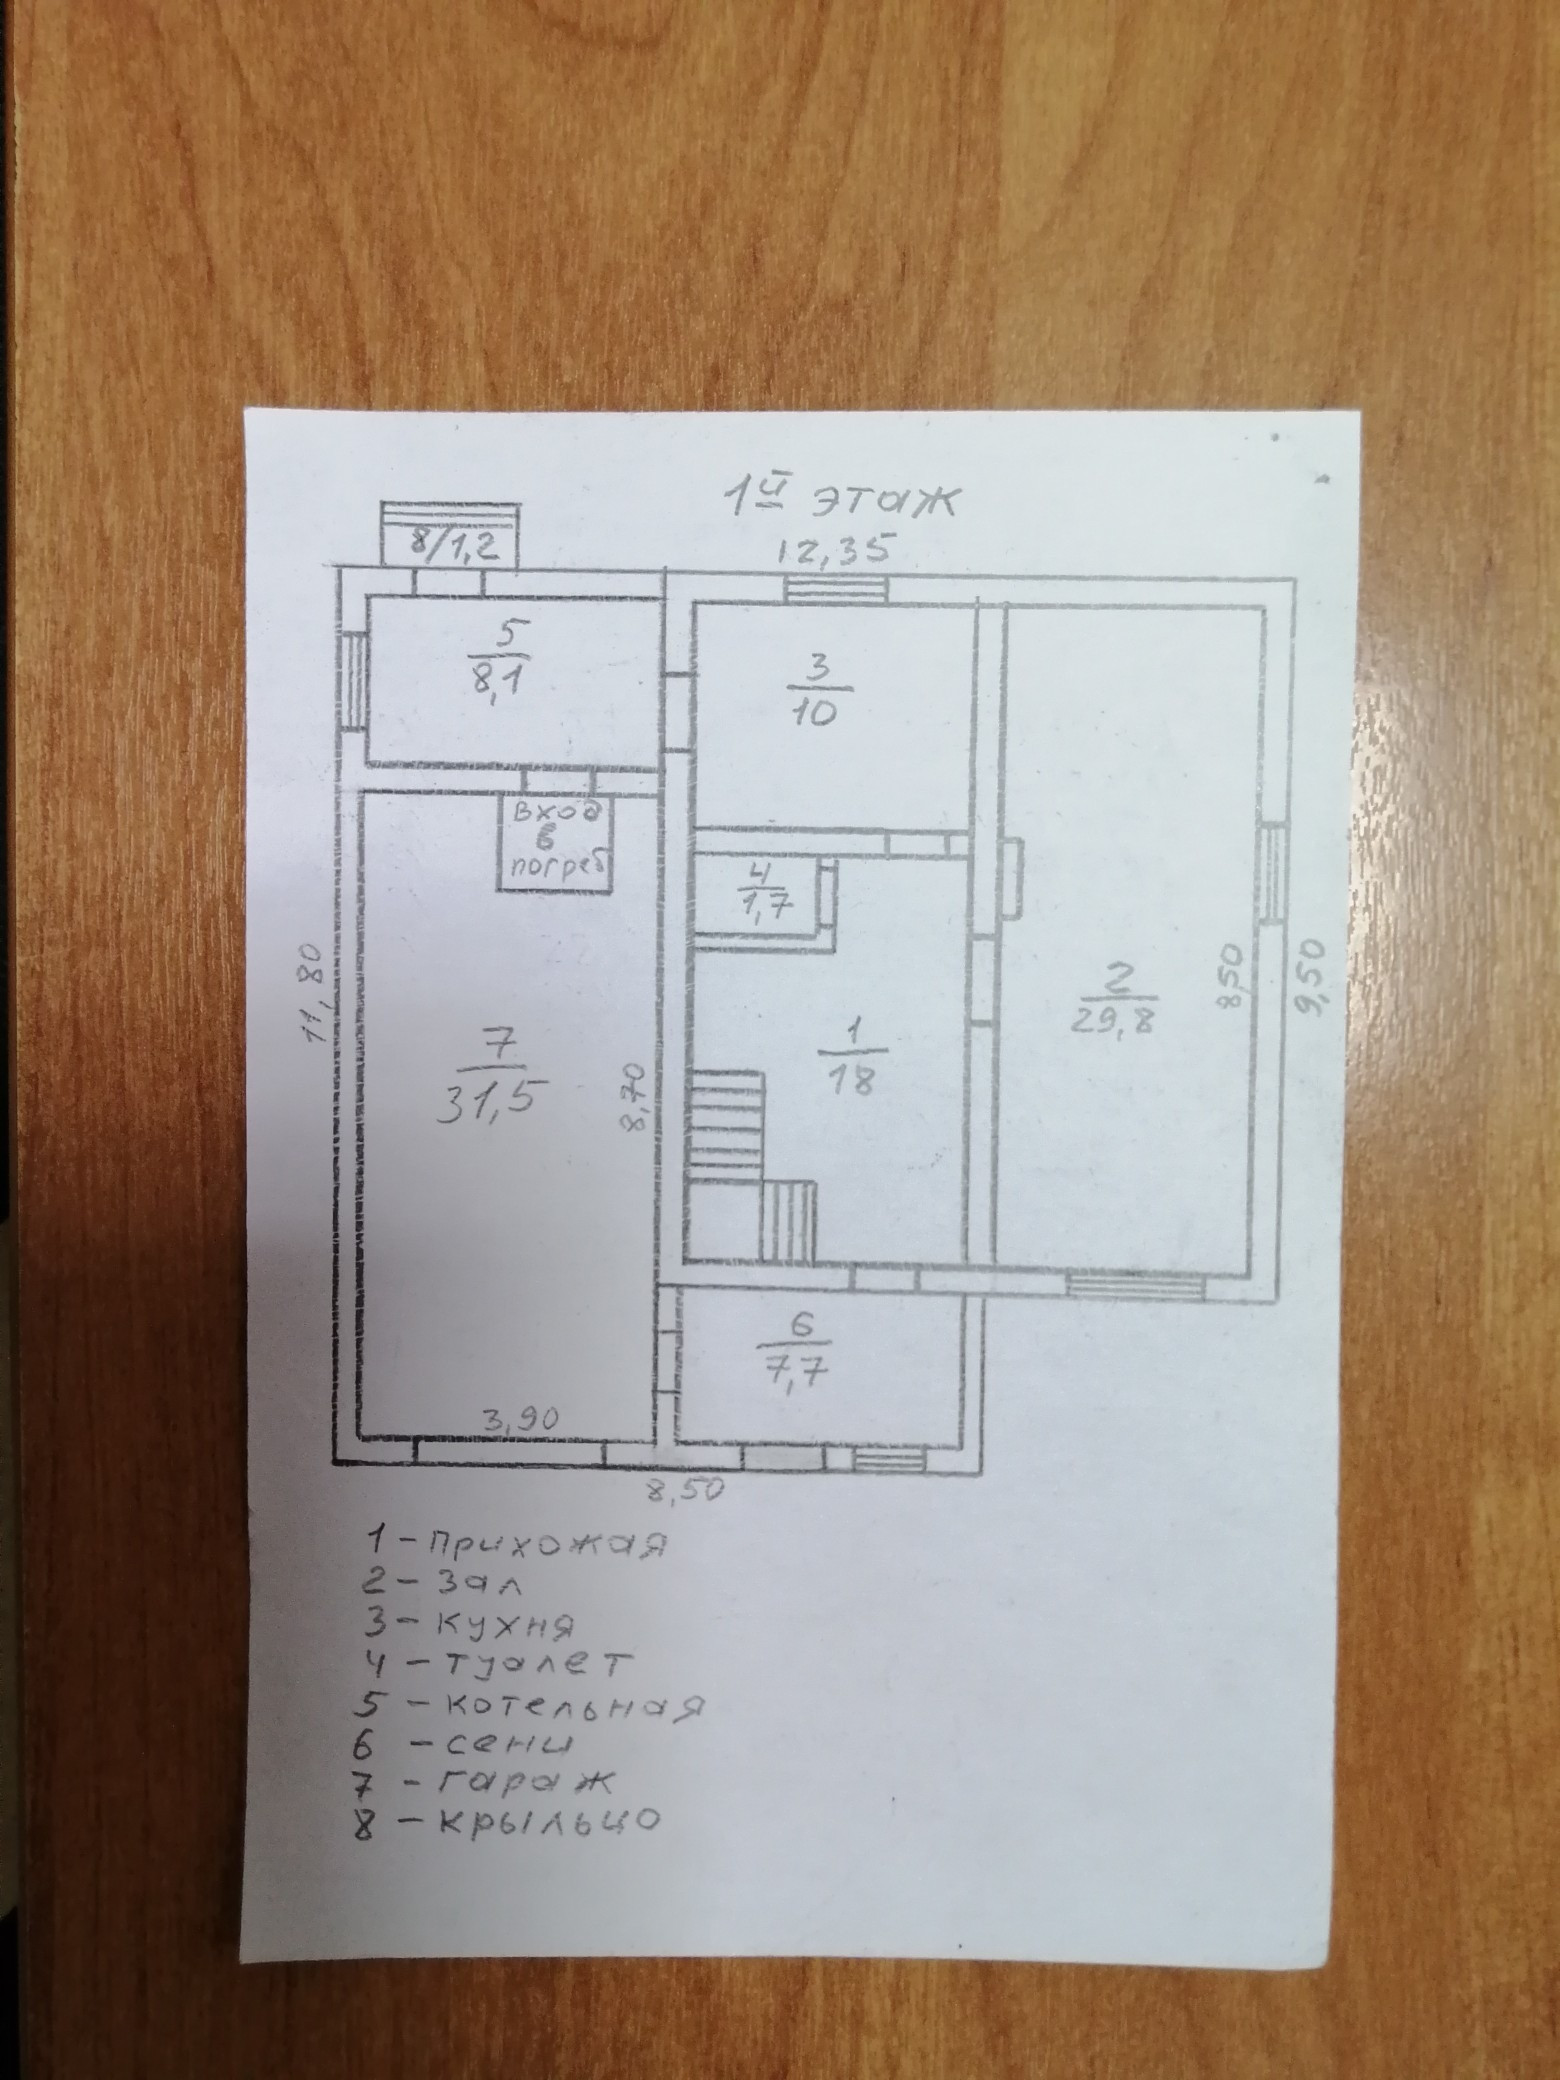 1й этаж
12,35
8/1,2
5
8,1
3
10
вход
в
погреб
4
1,7
11,80
7
31,5
8,70
1
18
2
29,8
8,50
9,50
6
7,7
3,90
8,50
1 - прихожая
2 - зал
3 - кухня
4 - туалет
5 - котельная
6 - сени
7 - гараж
8 - крыльцо